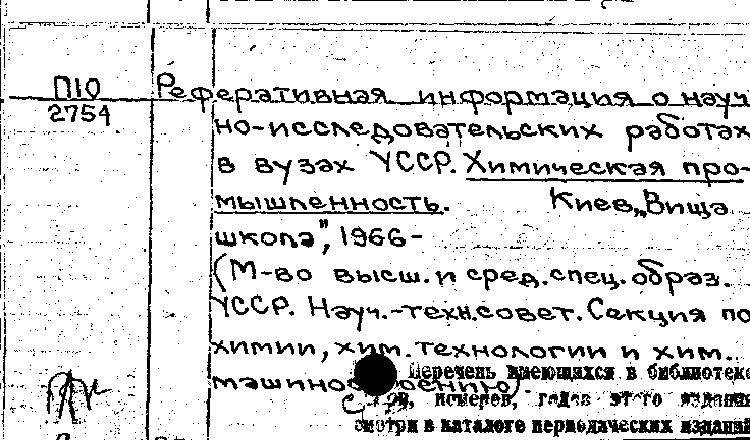 П10
2754
Реферативная информация о науч
но-исследовательских работах
в вузах УССР. Химическая про-
мышленность. Киев, „Вища
школа", 1966-
(М-во высш. и сред. спец. образ.
УССР. Науч.-техн. совет. Секция по
химии, хим. технологии и хим.
Перечень имеющихся в библиотеке
номеров, годов этого издания
смотри в каталоге периодических издании